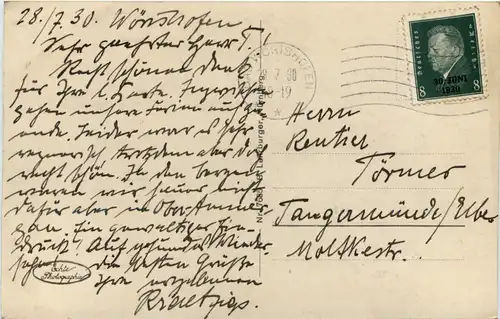 28./7.30. Wörishofen
Sehr geehrter Herr T.!
Recht schönen Dank
für Ihre l. Karte. Inzwischen
gehen unsere Ferien auch zu
Ende. Leider war es sehr
regnerisch, trotzdem aber doch
recht schön. In den Bergen
waren wir heuer nicht
dafür aber in Ober-Ammer-
gau. Ein gewaltiger Ein-
druck! Auf gesundes Wieder-
sehen die besten Grüße
Ihre ergebenen
Echte
Photographie
WÖRISHOFEN
7 30
-19
DEUTSCHES REICH
8 8
30. JUNI
1930
Herrn
Rentier
Törmer
Tangermünde/Elbe
Moltkestr.